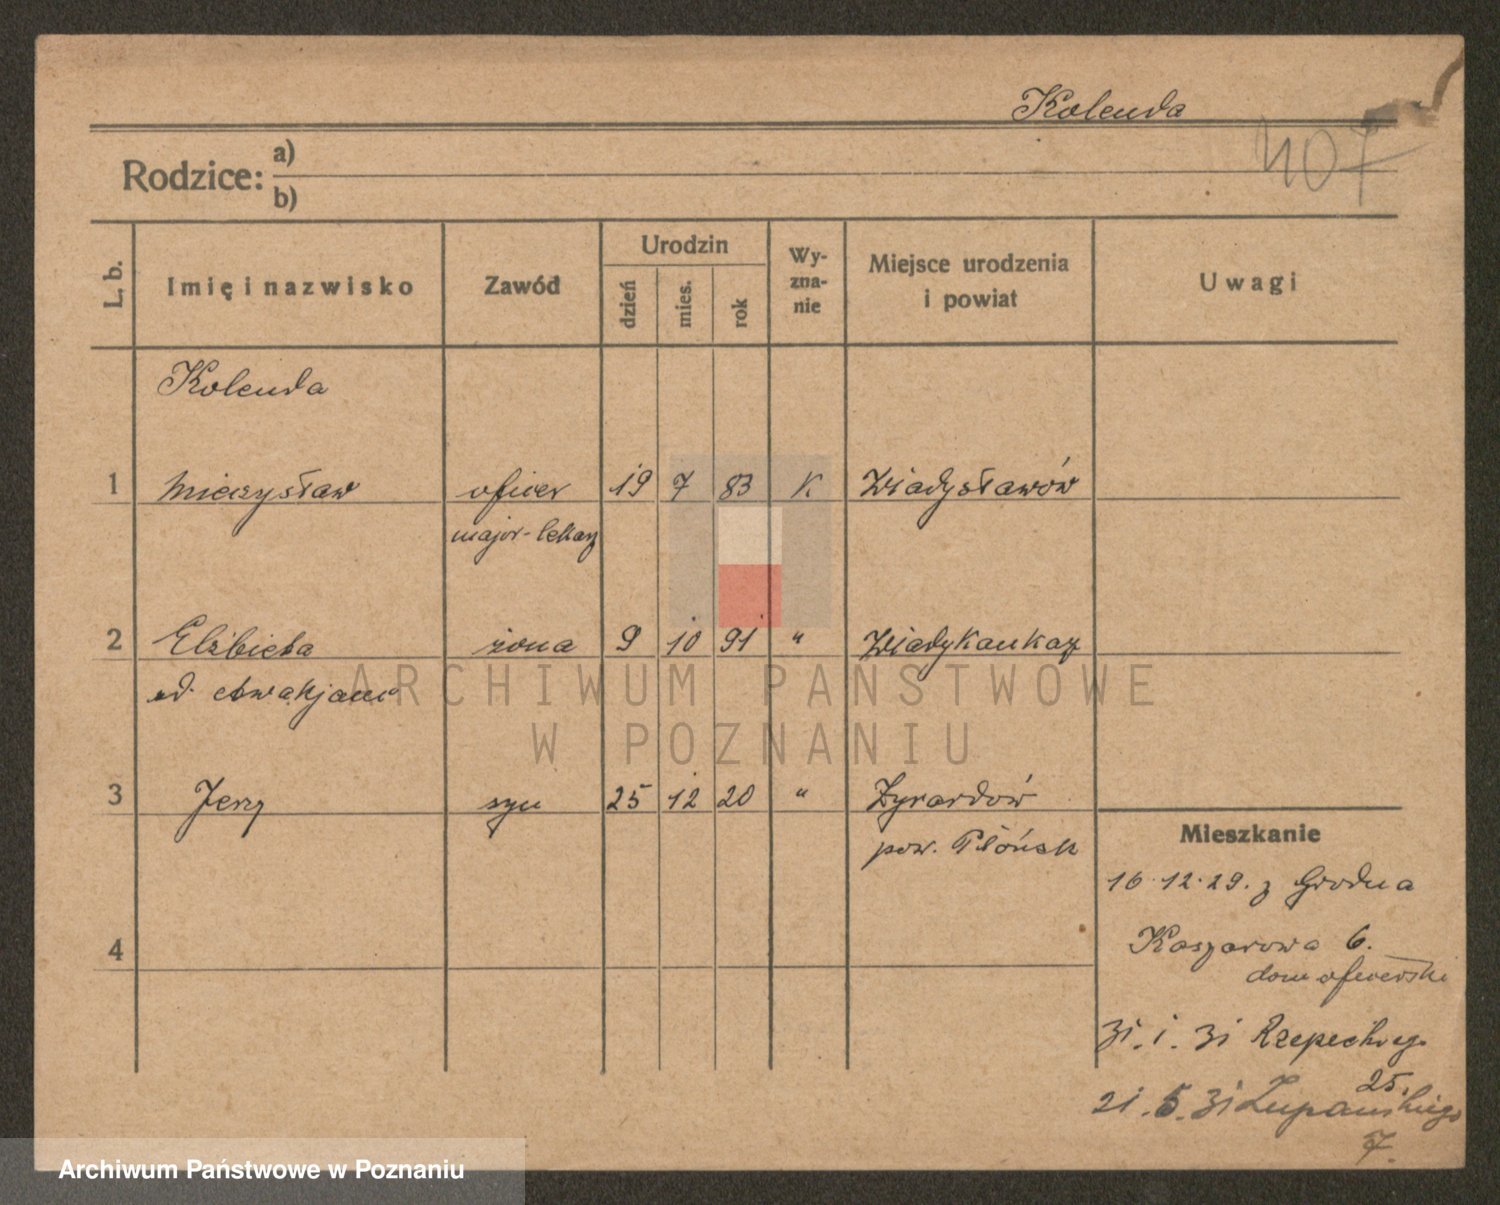 Kolenda
407
Rodzice: a)
b)
L. b. Imię i nazwisko Zawód Urodzin dzień mies. rok Wy-zna-nie Miejsce urodzenia i powiat Uwagi
Kolenda
1 Mieczysław oficer 19 7 83 K Władysławów
major-lekarz
2 Elżbieta żona 9 10 91 " Władykaukaz
ARCHIWUM PAŃSTWOWE
W POZNANIU
3 Jerzy syn 25 12 20 " Żyrardów
pow. Płońsk
Mieszkanie
16.12.29. z Grodna
4
Kaszarowa 6.
dom oficerski
31.1.31 Rzepeckiego
25.
21.5.31 Żupańskiego
7.
Archiwum Państwowe w Poznaniu